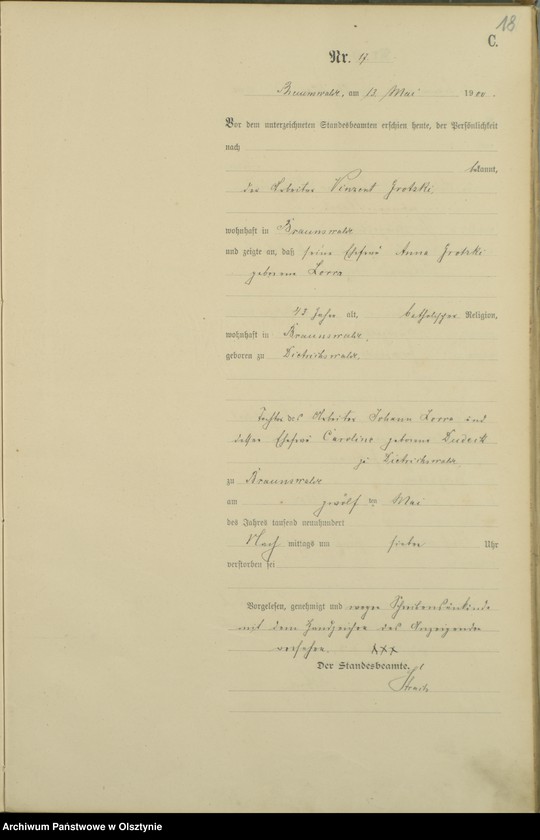 18
C.
Nr. 17
Braunswalde, am 13 Mai 1900.
Vor dem unterzeichneten Standesbeamten erschien heute, der Persönlichkeit
nach
bekannt,
der Arbeiter Vinzent Grotzki
wohnhaft in Braunswalde
und zeigte an, daß seine Ehefrau Anna Grotzki
geborene Lorra
43 Jahre alt, katholischer Religion,
wohnhaft in Braunswalde,
geboren zu Dietrichswalde,
Tochter des Arbeiter Johann Lorra und
dessen Ehefrau Caroline geborene Dudeck
zu Dietrichswalde
zu Braunswalde
am zwölf ten Mai
des Jahres tausend neunhundert
Nach mittags um sieben Uhr
verstorben sei
Vorgelesen, genehmigt und wegen Schreibensunkunde
mit dem Handzeichen des Anzeigenden
versehen. XXX
Der Standesbeamte.
Archiwum Państwowe w Olsztynie